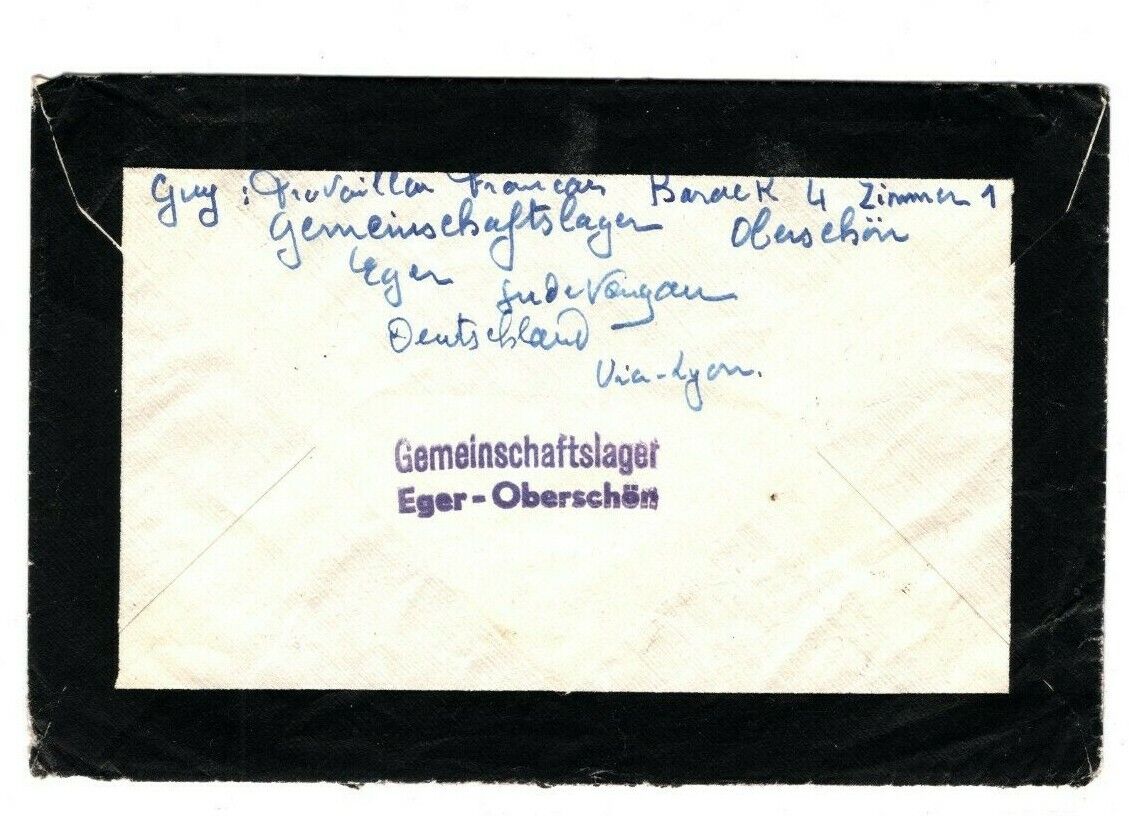 Guy : Travailleur Francais Barack 4 Zimmer 1
Gemeinschaftslager Oberschön
Eger
Deutschland
Via-Lyon.
Gemeinschaftslager
Eger-Oberschön